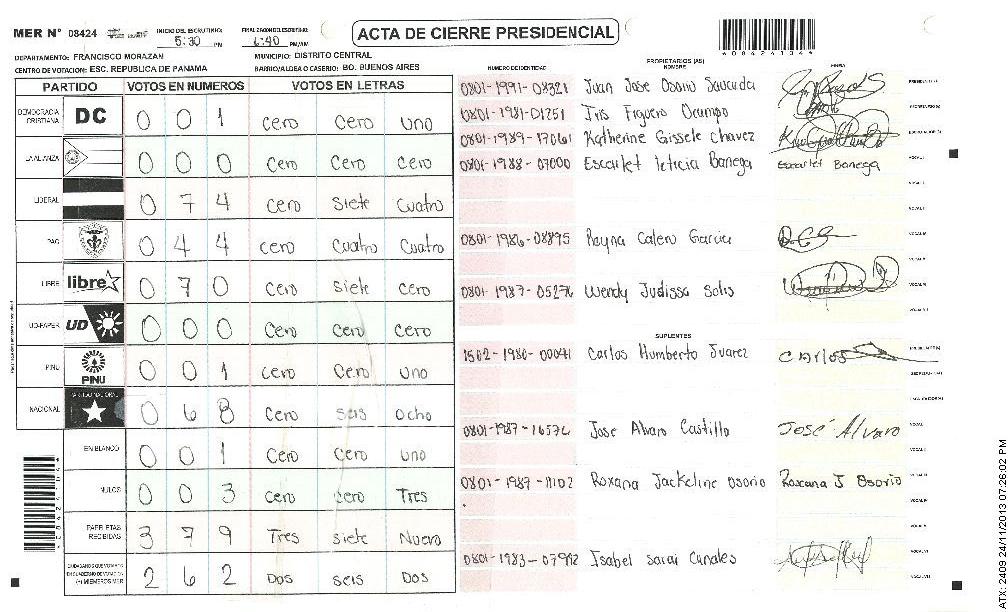 MER N° 08424 INICIO DEL ESCRUTINIO: 5:30 PM FINALIZACION DEL ESCRUTINIO: 6:40 PM/AM
ACTA DE CIERRE PRESIDENCIAL
DEPARTAMENTO: FRANCISCO MORAZAN MUNICIPIO: DISTRITO CENTRAL
CENTRO DE VOTACION: ESC. REPUBLICA DE PANAMA BARRIO/ALDEA O CASERIO: BO. BUENOS AIRES
PARTIDO VOTOS EN NUMEROS VOTOS EN LETRAS
DEMOCRACIA CRISTIANA DC 0 0 1 Cero Cero Uno
LA ALIANZA 0 0 0 Cero Cero Cero
LIBERAL 0 7 4 Cero Siete Cuatro
PAC 0 4 4 Cero Cuatro Cuatro
LIBRE libre 0 7 0 Cero Siete Cero
UD-FAPER UD 0 0 0 Cero Cero Cero
PINU PINU 0 0 1 Cero Cero Uno
NACIONAL 0 6 8 Cero seis Ocho
EN BLANCO 0 0 1 Cero Cero Uno
NULOS 0 0 3 Cero Cero Tres
PAPELETAS RECIBIDAS 3 7 9 Tres siete Nueve
2 6 2 Dos seis Dos
NUMERO DE IDENTIDAD PROPIETARIOS (AS) NOMBRE FIRMA
0801-1991-08321 Juan Jose Osorio Saucada
0801-1981-01251 Iris Figuero Ocampo
0801-1989-17061 Katherine Gissele Chavez
0801-1988-07000 Escarlet leticia Banega Escarlet Banega
0801-1986-08895 Reyna Calero Garcia
0801-1987-05276 Wendy Judissa Solis
SUPLENTES
1502-1980-00041 Carlos Humberto Juarez Carlos
0801-1987-16576 Jose Alvaro Castillo José Alvaro
0801-1987-11102 Roxana Jackeline Osorio Roxana J Osorio
0801-1983-07992 Isabel Sarai Canales
ATX: 2409 24/11/2013 07:26:02 PM